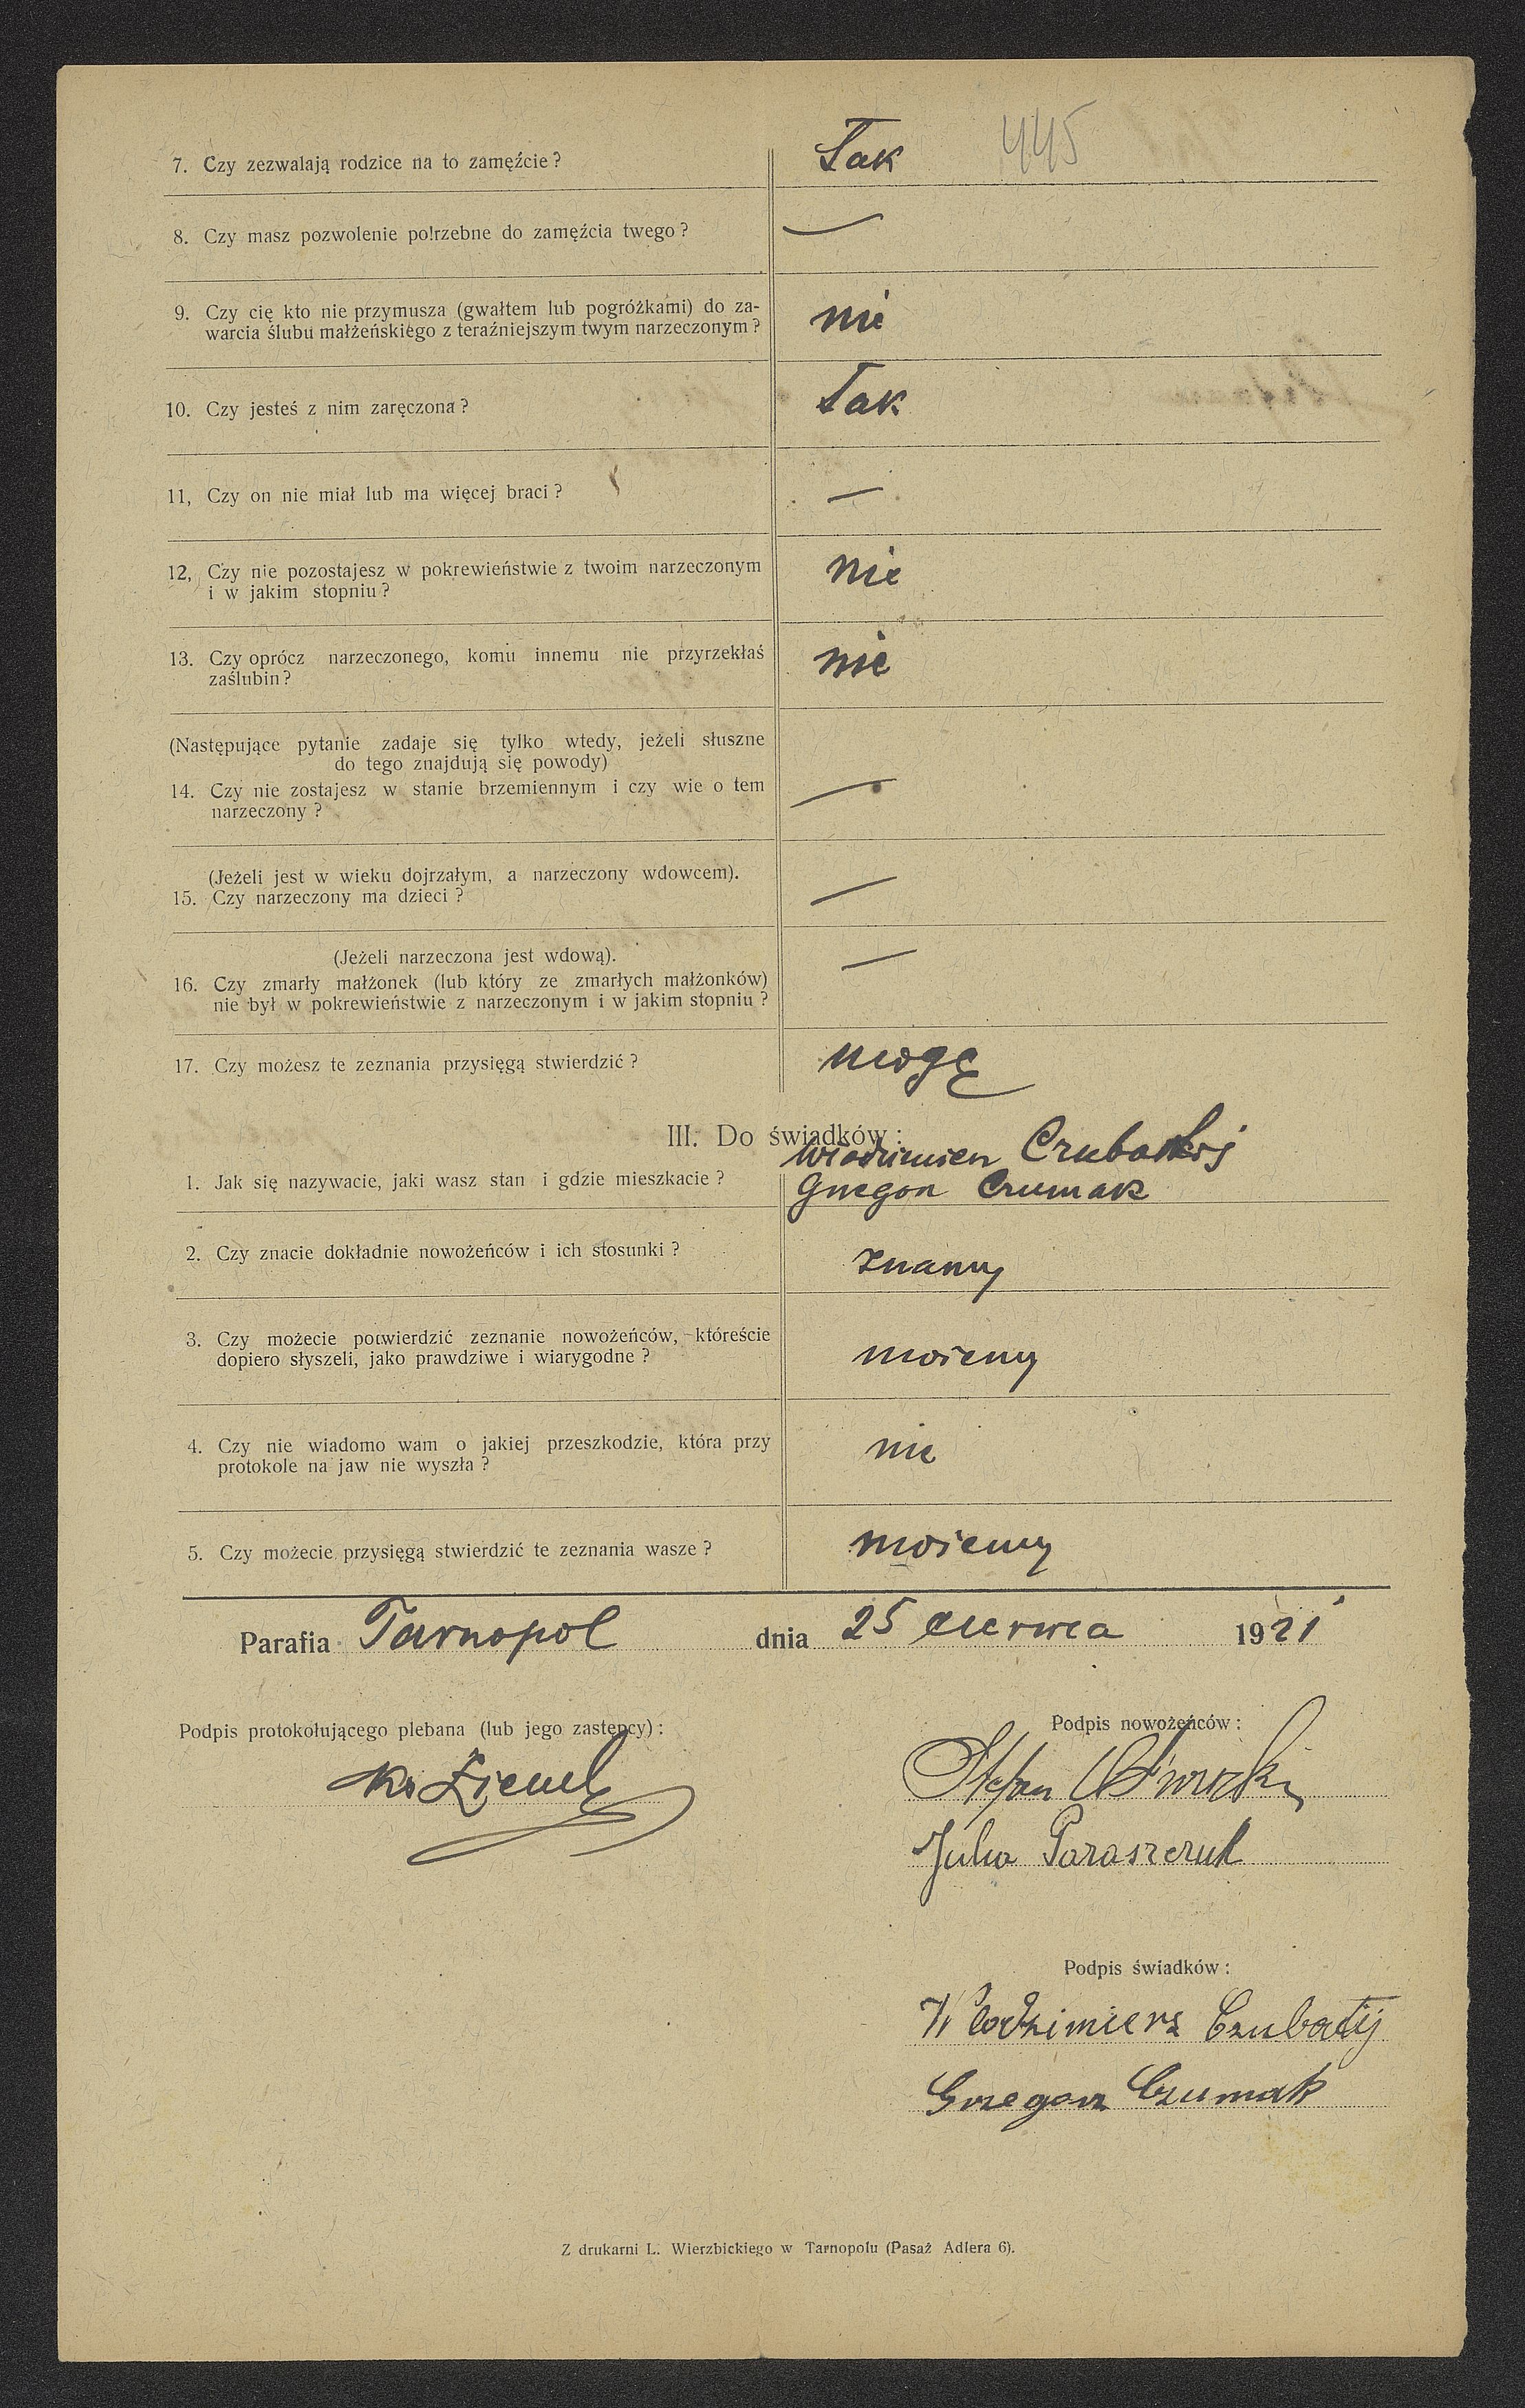 445
7. Czy zezwalają rodzice na to zamęźcie? Tak
8. Czy masz pozwolenie potrzebne do zamęźcia twego? —
9. Czy cię kto nie przymusza (gwałtem lub pogróżkami) do za-
warcia ślubu małżeńskiego z teraźniejszym twym narzeczonym? nie
10. Czy jesteś z nim zaręczona? Tak
11, Czy on nie miał lub ma więcej braci? —
12, Czy nie pozostajesz w pokrewieństwie z twoim narzeczonym
i w jakim stopniu? nie
13. Czy oprócz narzeczonego, komu innemu nie przyrzekłaś
zaślubin? nie
(Następujące pytanie zadaje się tylko wtedy, jeżeli słuszne
do tego znajdują się powody)
14. Czy nie zostajesz w stanie brzemiennym i czy wie o tem
narzeczony? —
(Jeżeli jest w wieku dojrzałym, a narzeczony wdowcem).
15. Czy narzeczony ma dzieci? —
(Jeżeli narzeczona jest wdową).
16. Czy zmarły małżonek (lub który ze zmarłych małżonków)
nie był w pokrewieństwie z narzeczonym i w jakim stopniu? —
17. Czy możesz te zeznania przysięgą stwierdzić? mogę
III. Do świadków:
1. Jak się nazywacie, jaki wasz stan i gdzie mieszkacie? Włodzimierz
Grzegorz Czumak
2. Czy znacie dokładnie nowożeńców i ich stosunki? znamy
3. Czy możecie potwierdzić zeznanie nowożeńców, któreście
dopiero słyszeli, jako prawdziwe i wiarygodne? możemy
4. Czy nie wiadomo wam o jakiej przeszkodzie, która przy
protokole na jaw nie wyszła? nie
5. Czy możecie przysięgą stwierdzić te zeznania wasze? możemy
Parafia Tarnopol dnia 25 czerwca 1921
Podpis protokołującego plebana (lub jego zastępcy):
Ks
Podpis nowożeńców:
Stefan
Julia Paraszczuk
Podpis świadków:
Włodzimierz Czubatij
Grzegorz Czumak
Z drukarni L. Wierzbickiego w Tarnopolu (Pasaż Adlera 6).